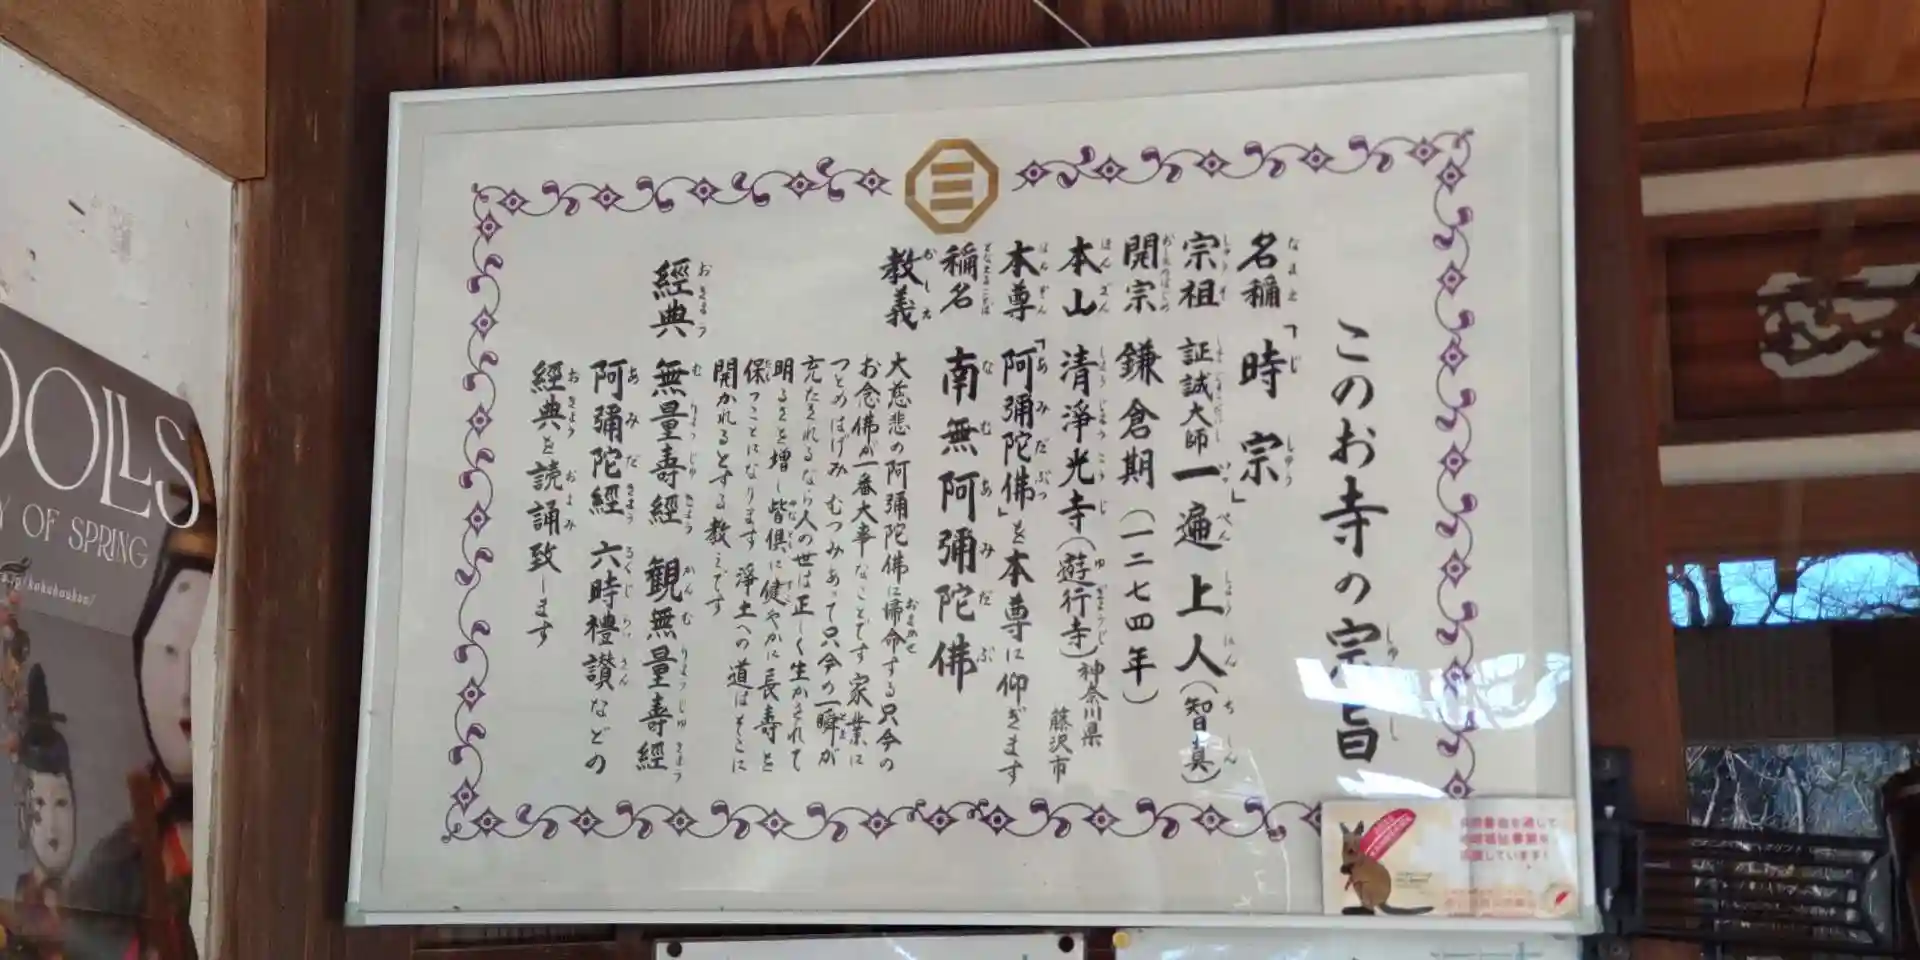 このお寺の宗旨
名稱「時宗」
宗祖 証誠大師 一遍上人(智真)
開宗 鎌倉期(一二七四年)
本山 清淨光寺(遊行寺)神奈川県藤沢市
本尊「阿彌陀佛」を本尊に仰ぎます
稱名 南無阿彌陀佛
教義 大慈悲の阿彌陀佛に帰命する只今の
お念佛が一番大事なことです 家業に
つとめはげみ むつみあって只今の一瞬が
充たされるなら人の世は正しく生かされて
明るさを増し皆倶に健やかに長寿を
保つことになります 淨土への道はそこに
開かれるとする教えです
經典 無量壽經 観無量壽經
阿彌陀經 六時禮讃などの
經典を読誦致します
DOLLS
Y OF SPRING